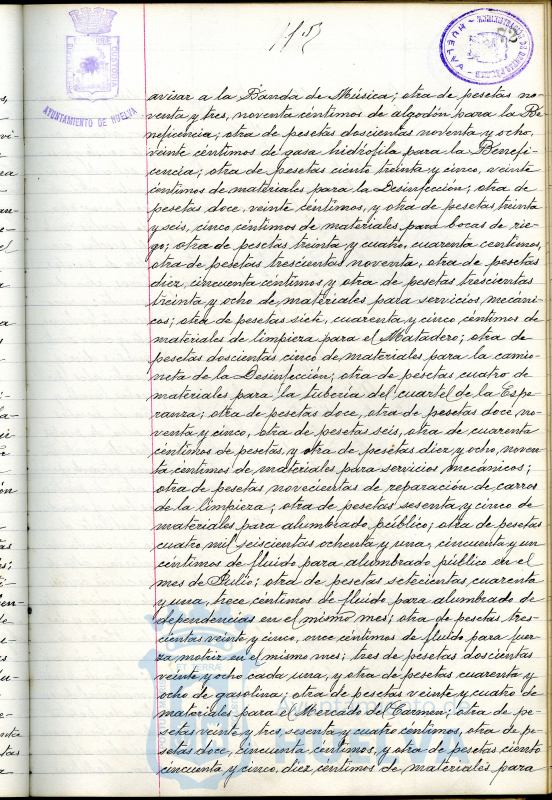 115
AYUNTAMIENTO DE HUELVA
HUELVA
avisar a la Banda de Música; otra de pesetas no-
venta y tres, noventa céntimos de algodón para la Be-
neficencia; otra de pesetas doscientas noventa y ocho,
veinte céntimos de gasa hidrófila para la Benefi-
cencia; otra de pesetas ciento treinta y cinco, veinte
céntimos de materiales para la Desinfección; otra de
pesetas doce, veinte céntimos, y otra de pesetas treinta
y seis, cinco céntimos de materiales para bocas de rie-
go; otra de pesetas treinta y cuatro, cuarenta centimos,
otra de pesetas trescientas noventa, otra de pesetas
diez, cincuenta céntimos, y otra de pesetas trescientas
treinta y ocho de materiales para servicios mecáni-
cos; otra de pesetas siete, cuarenta y cinco céntimos de
materiales de limpieza para el Matadero; otra de
pesetas doscientas cinco de materiales para la camio-
neta de la Desinfección; otra de pesetas cuatro de
materiales para la tuberia del cuartel de la Espe-
ranza; otra de pesetas doce, otra de pesetas doce, no-
venta y cinco, otra de pesetas seis, otra de cuarenta
céntimos de pesetas, y otra de pesetas diez y ocho, noven-
ta céntimos de materiales para servicios mecánicos;
otra de pesetas novecientas de reparación de carros
de la limpieza; otra de pesetas sesenta y cinco de
materiales para alumbrado público; otra de pesetas
cuatro mil seiscientas ochenta y una, cincuenta y un
centimos de fluido para alumbrado público en el
mes de Julio; otra de pesetas setecientas cuarenta
y una, trece céntimos de fluido para alumbrado de
dependencias en el mismo mes; otra de pesetas, tres-
cientas veinte y cinco, once céntimos de fluido para fuer-
za motriz en el mismo mes; tres de pesetas doscientas
veinte y ocho cada una, y otra de pesetas cuarenta y
ocho de gasolina; otra de pesetas veinte y cuatro de
materiales para el Mercado del Carmen; otra de pe-
setas veinte y tres, sesenta y cuatro céntimos, otra de pe-
setas doce, cincuenta céntimos, y otra de pesetas ciento
cincuenta y cinco, diez céntimos de materiales para